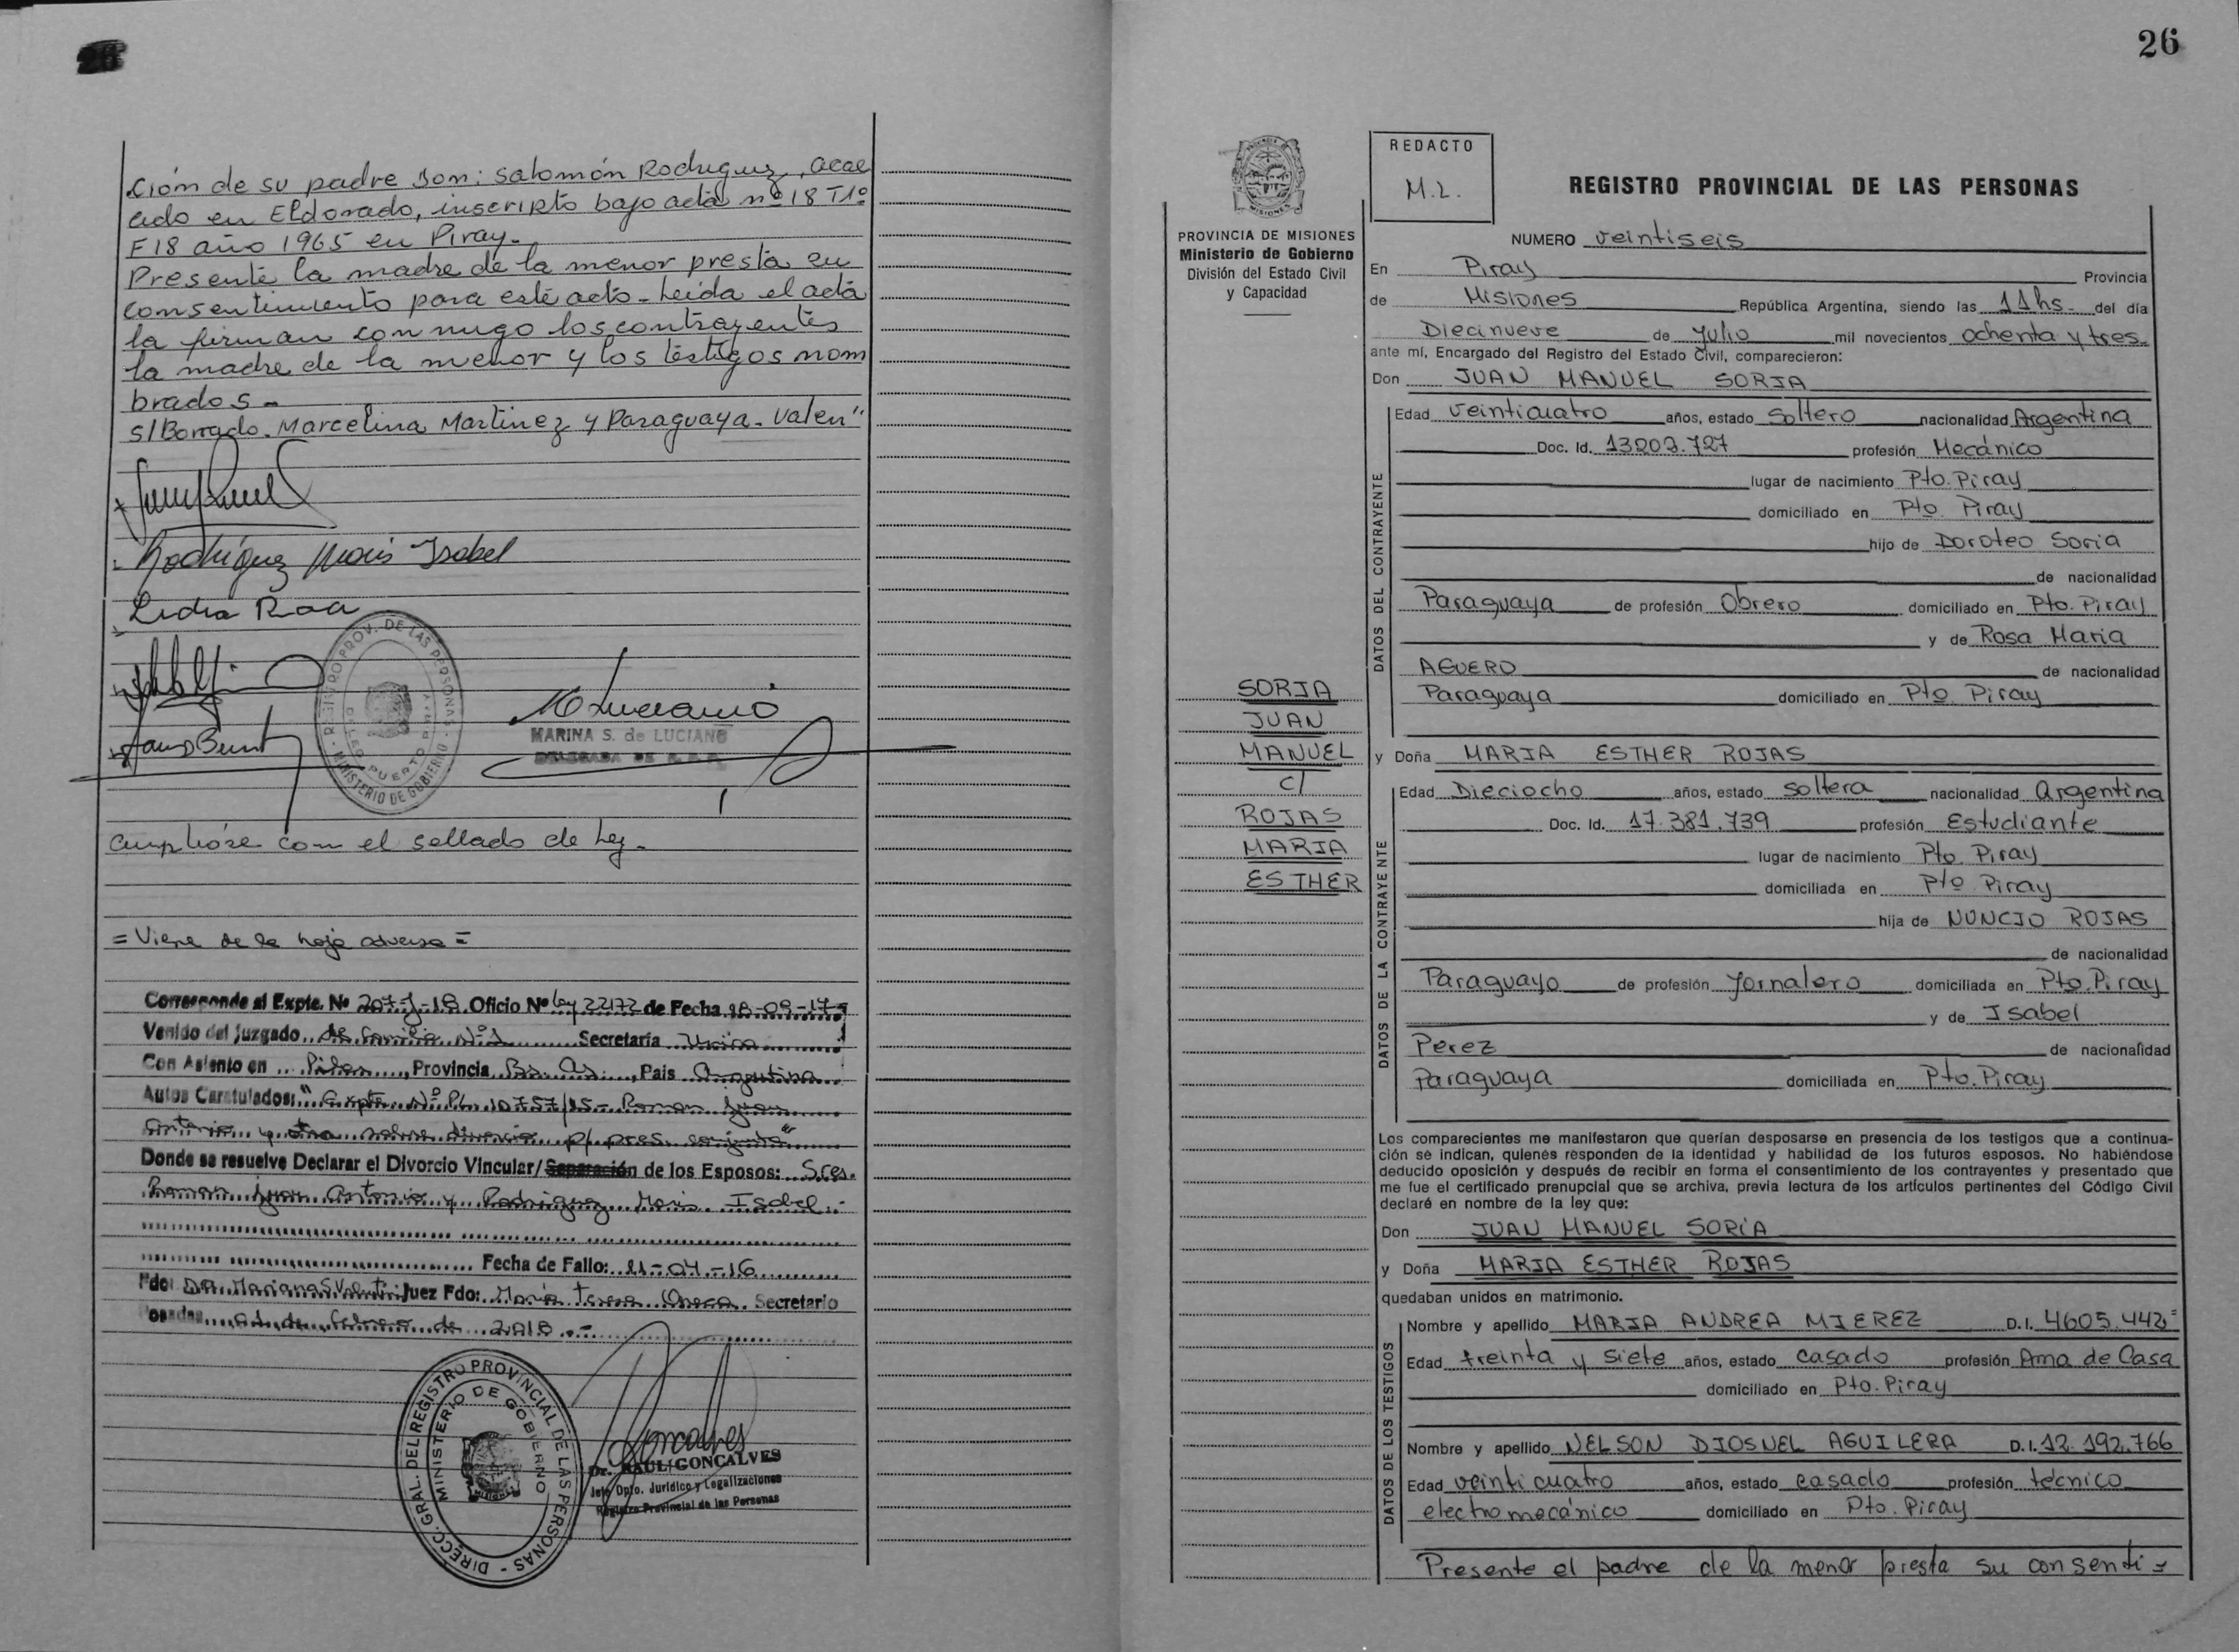 ción de su padre Don: Salomón Rodriguez, acae
cido en Eldorado, inscripto bajo acta nº 18 T1º
F18 año 1965 en Piray.-
Presente la madre de la menor presta su
consentimiento para este acto - Leída el acta
la firman conmigo los contrayentes
la madre de la menor y los testigos nom
brados -
S/Borrado. Marcelina Martinez y Paraguaya. Valen"
Rodriguez Maris Isabel
Lidia Roa
REGISTRO PROV. DE LAS PERSONAS
MINISTERIO DE GOBIERNO
PUERTO
MARINA S. de LUCIANO
Cumplióse con el sellado de Ley -
= Viene de la hoja adversa =
Corresponde al Expte. Nº 207-J-18 Oficio Nº Ley 22172 de Fecha 28-09-17
Venido del Juzgado de Familia Nº 1 Secretaría Unica
Con Asiento en Pilar, Provincia Bs. As., Pais Argentina
Autos Caratulados: "Expte. Nº PL 10757/15 - Roman Juan
Antonio y otra sobre divorcio p/ pres. conjunta"
Donde se resuelve Declarar el Divorcio Vincular/Separación de los Esposos: Sres.
Roman Juan Antonio y Rodriguez Maris Isabel.-
Fecha de Fallo: 21-04-16
Fdo: DRA. Mariana S. Valentin Juez Fdo: María Teresa Secretario
Posadas, 01 de Febrero de 2018.-
DIRECC. GRAL. DEL REGISTRO PROVINCIAL DE LAS PERSONAS
MINISTERIO DE GOBIERNO
MISIONES
Dr. RAUL GONCALVES
Jefe Dpto. Jurídico y Legalizaciones
Registro Provincial de las Personas
26
MISIONES
PROVINCIA DE MISIONES
Ministerio de Gobierno
División del Estado Civil
y Capacidad
SORIA
JUAN
MANUEL
c/
ROJAS
MARIA
ESTHER
REDACTO
M.L.
REGISTRO PROVINCIAL DE LAS PERSONAS
NUMERO veintiseis
En Piray Provincia
de Misiones República Argentina, siendo las 11hs. del día
Diecinueve de Julio mil novecientos ochenta y tres
ante mí, Encargado del Registro del Estado Civil, comparecieron:
Don JUAN MANUEL SORIA
DATOS DEL CONTRAYENTE
Edad veinticuatro años, estado soltero nacionalidad Argentina
Doc. Id. 13203.727 profesión Mecánico
lugar de nacimiento Pto. Piray
domiciliado en Pto. Piray
hijo de Doroteo Soria
de nacionalidad
Paraguaya de profesión Obrero domiciliado en Pto. Piray
y de Rosa Maria
AGUERO de nacionalidad
Paraguaya domiciliado en Pto Piray
y Doña MARIA ESTHER ROJAS
DATOS DE LA CONTRAYENTE
Edad Dieciocho años, estado soltera nacionalidad argentina
Doc. Id. 17.381.739 profesión Estudiante
lugar de nacimiento Pto. Piray
domiciliada en Pto Piray
hija de NUNCIO ROJAS
de nacionalidad
Paraguayo de profesión Jornalero domiciliada en Pto. Piray
y de Isabel
Perez de nacionalidad
Paraguaya domiciliada en Pto. Piray
Los comparecientes me manifestaron que querían desposarse en presencia de los testigos que a continua-
ción se indican, quienes responden de la identidad y habilidad de los futuros esposos. No habiéndose
deducido oposición y después de recibir en forma el consentimiento de los contrayentes y presentado que
me fue el certificado prenupcial que se archiva, previa lectura de los artículos pertinentes del Código Civil
declaré en nombre de la ley que:
Don JUAN MANUEL SORIA
y Doña MARIA ESTHER ROJAS
quedaban unidos en matrimonio.
DATOS DE LOS TESTIGOS
Nombre y apellido MARIA ANDREA MIEREZ D.I. 4605.442=
Edad treinta y siete años, estado casado profesión Ama de Casa
domiciliado en Pto. Piray
Nombre y apellido NELSON DIOSNEL AGUILERA D.I. 12.192.766
Edad veinticuatro años, estado casado profesión técnico
electromecánico domiciliado en Pto. Piray
Presente el padre de la menor presta su consenti =